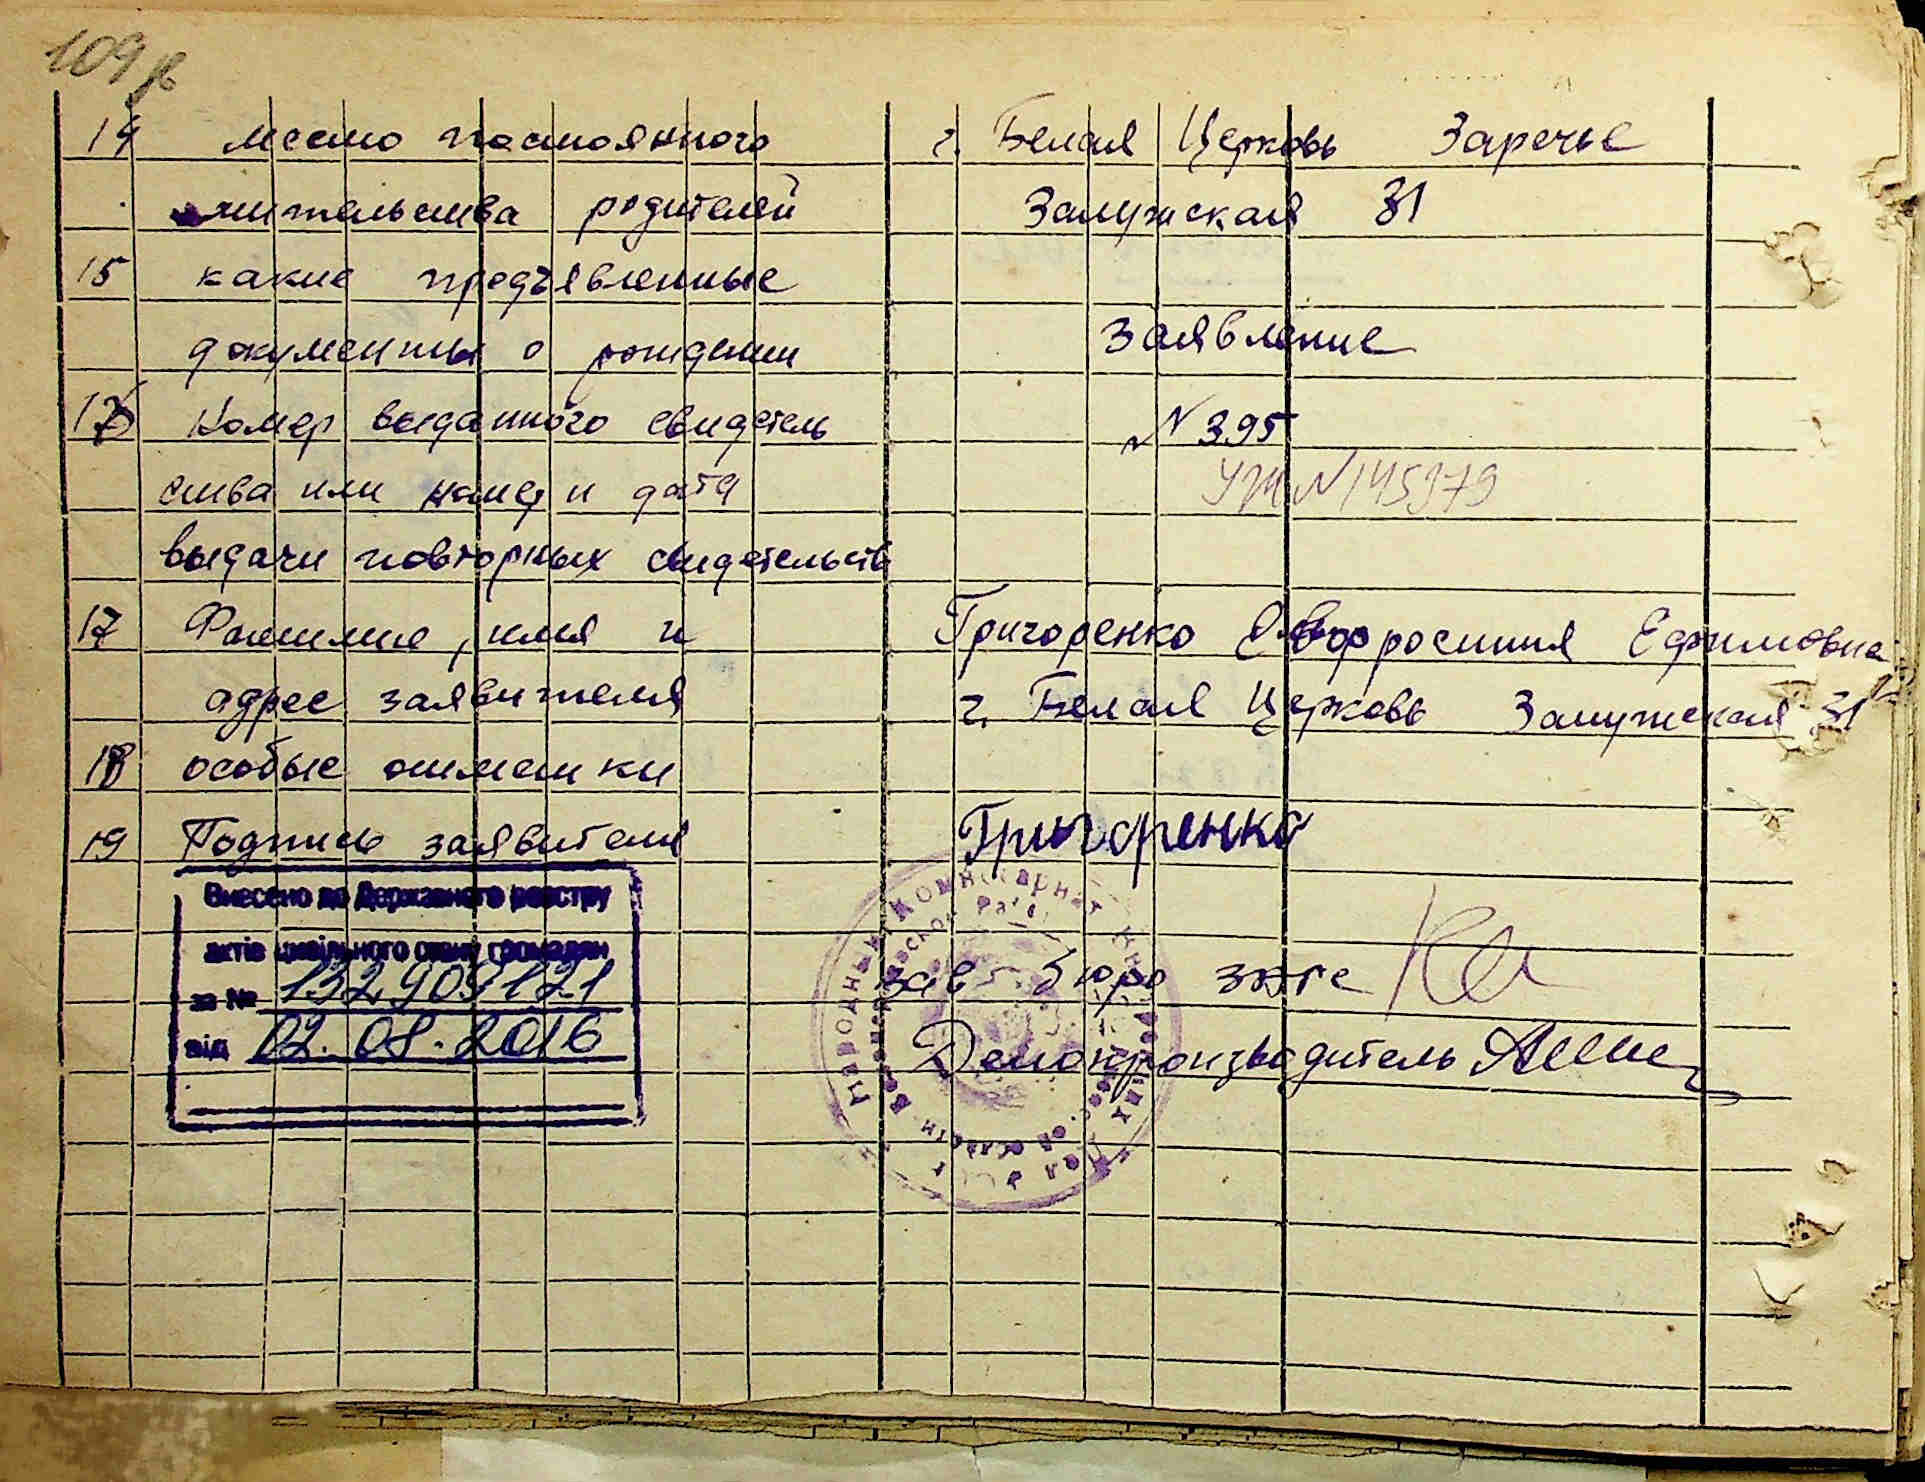 109
14 место постоянного г. Белая Церковь Заречье
жительства родителей Залужская 31
15 какие предъявленные
документы о рождении заявление
Номер выданного свидетель № 395
ства или номер и дата № 145979
выдачи повторных свидетельств
17 Фамилие, имя и Григоренко Ефимовна
адрес заявителя г. Белая Церковь Залужская 31
18 особые отметки
19 Подпись заявителя Григоренко
Внесено до Державного реєстру
актів цивільного стану громадян
зав бюро загс
за №
від 02.08.2016
Делопроизводитель
Народный Комиссариат